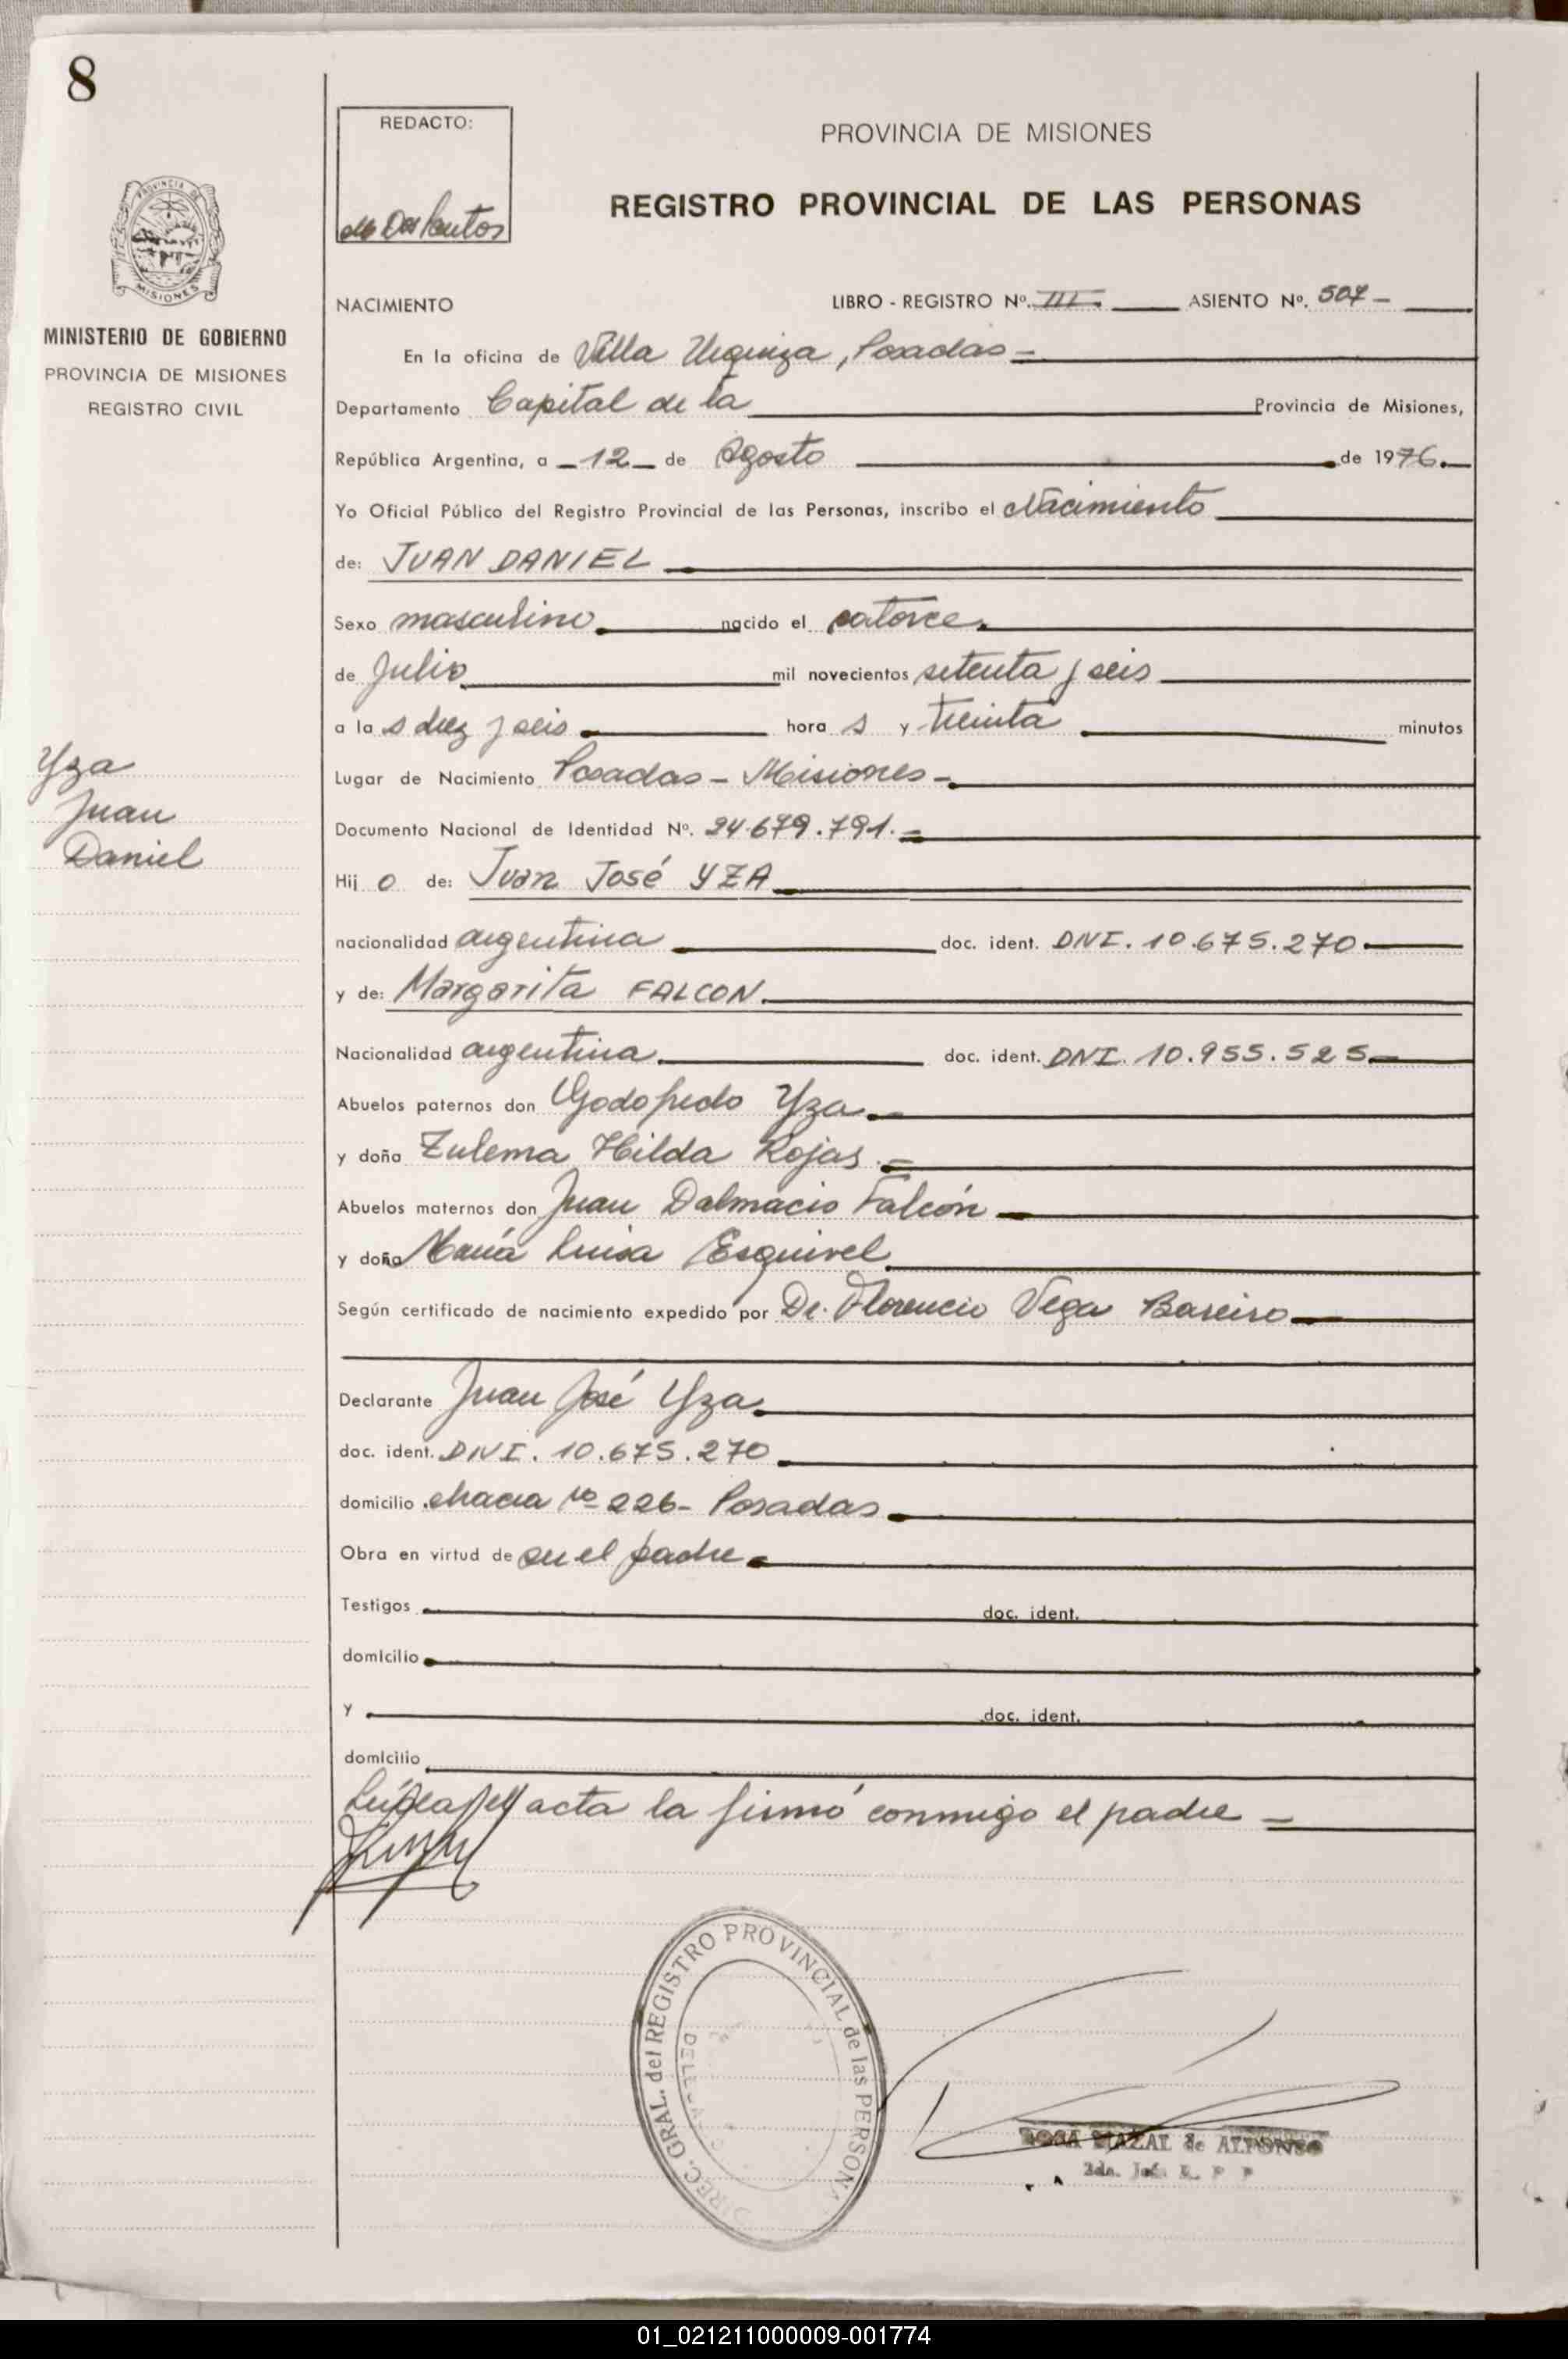 8
REDACTO:
PROVINCIA DE MISIONES
REGISTRO PROVINCIAL DE LAS PERSONAS
PROVINCIA DE
MISIONES
MINISTERIO DE GOBIERNO
PROVINCIA DE MISIONES
REGISTRO CIVIL
NACIMIENTO LIBRO - REGISTRO Nº. III. ASIENTO Nº. 507 -
En la oficina de Villa Urquiza, Posadas =
Departamento Capital de la Provincia de Misiones,
República Argentina, a - 12 - de Agosto de 1976.
Yo Oficial Público del Registro Provincial de las Personas, inscribo el Nacimiento
de: JUAN DANIEL
Sexo masculino. nacido el catorce.
de Julio mil novecientos setenta y seis
a la s diez y seis hora s y treinta minutos
Yza
Juan
Daniel
Lugar de Nacimiento Posadas - Misiones -
Documento Nacional de Identidad Nº. 24.679.791. =
Hij o de: Juan José YZA
nacionalidad argentina doc. ident. DNI. 10.675.270
y de: Margarita FALCON.
Nacionalidad argentina. doc. ident. DNI. 10.955.525
Abuelos paternos don Godofredo Yza.
y doña Zulema Hilda Rojas. =
Abuelos maternos don Juan Dalmacio Falcón
y doña María Luisa Esquivel
Según certificado de nacimiento expedido por Dr. Florencio Vega Bareiro
Declarante Juan José Yza
doc. ident. DNI. 10.675.270
domicilio chacra Nº 226 - Posadas
Obra en virtud de ser el padre
Testigos doc. ident.
domicilio
y doc. ident.
domicilio
Leída el acta la firmó conmigo el padre =
DIREC. GRAL. del REGISTRO PROVINCIAL de las PERSONA
ROSA MAZAL de ALFONSO